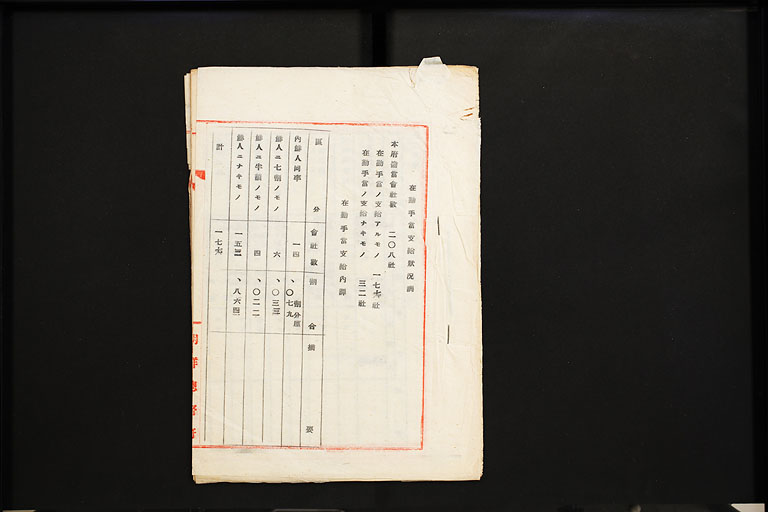 在勤手當支給狀況調
本府該當會社數 二〇八社
在勤手當ノ支給アルモノ 一七六社
在勤手當ノ支給ナキモノ 三二社
在勤手當支給內譯
區分 會社數 割合 摘要
割分厘
內鮮人同率 一四 、〇七九
鮮人ニ七割ノモノ 六 、〇三三
鮮人ニ半額ノモノ 四 、〇二二
鮮人ニナキモノ 一五二 、八六四
計 一七六
朝鮮總督府